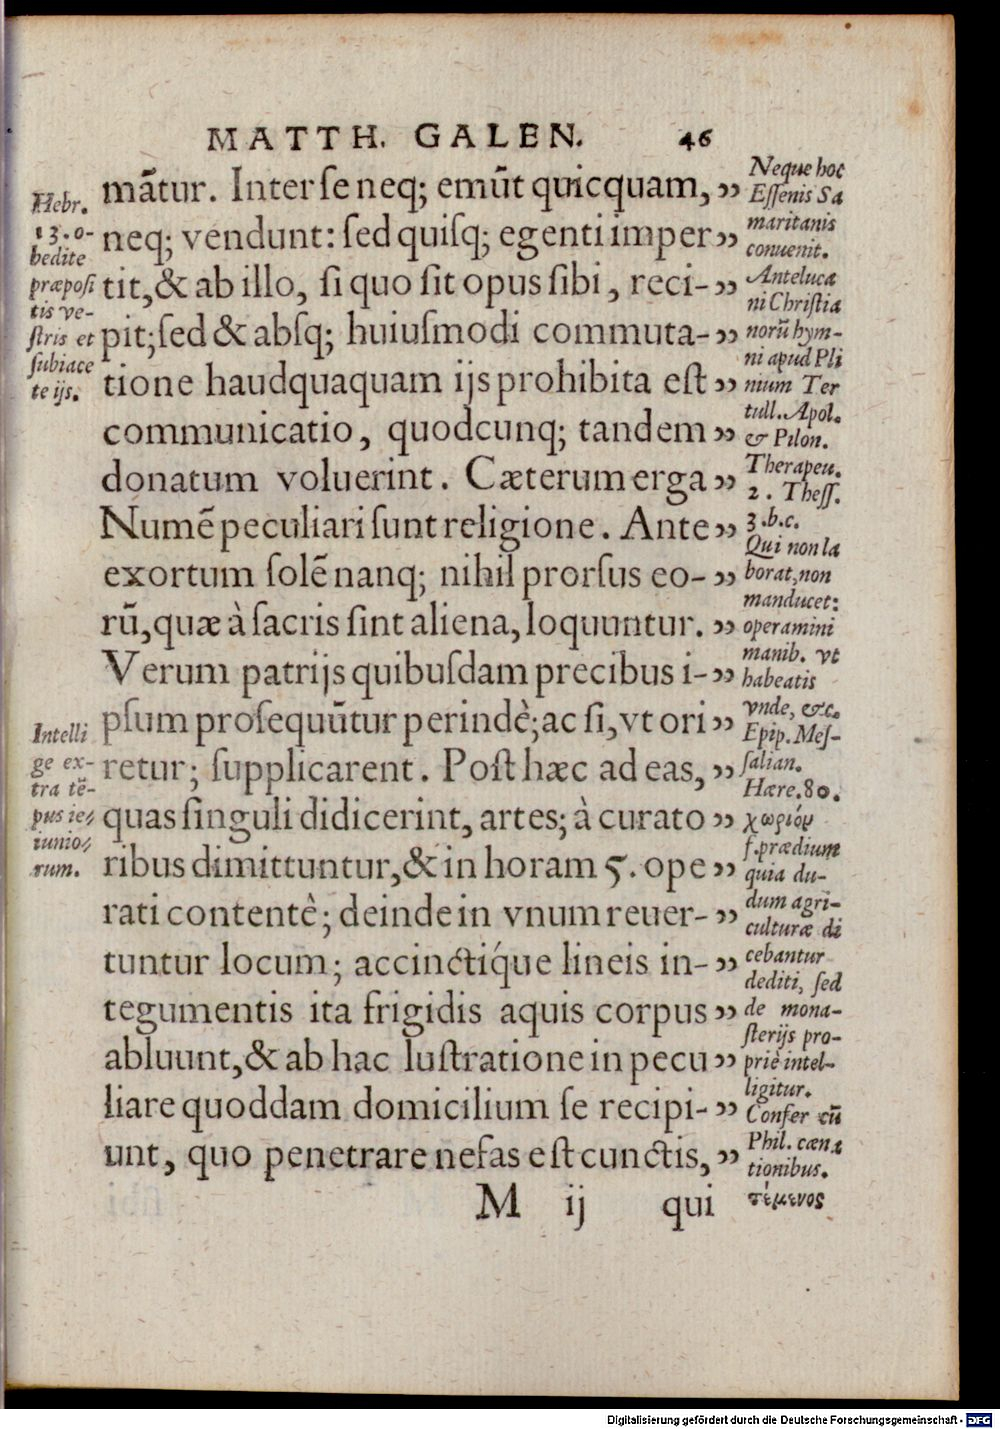 MATTH. GALEN. 46
mãtur. Inter se neq; emũt quicquam, ”
neq; vendunt: sed quisq; egenti imper ”
tit, & ab illo, si quo sit opus sibi, reci- ”
pit; sed & absq; huiusmodi commuta- ”
tione haudquaquam ijs prohibita est ”
communicatio, quodcunq; tandem ”
donatum voluerint. Cæterum erga ”
Numẽ peculiari sunt religione. Ante ”
exortum solẽ nanq; nihil prorsus eo- ”
rũ, quæ à sacris sint aliena, loquuntur. ”
Verum patrijs quibusdam precibus i- ”
psum prosequũtur perindè; ac si, vt ori ”
retur; supplicarent. Post hæc ad eas, ”
quas singuli didicerint, artes; à curato ”
ribus dimittuntur, & in horam 5. ope ”
rati contentè; deinde in vnum reuer- ”
tuntur locum; accinctíque lineis in- ”
tegumentis ita frigidis aquis corpus ”
abluunt, & ab hac lustratione in pecu ”
liare quoddam domicilium se recipi- ”
unt, quo penetrare nefas est cunctis, ”
M ij qui
Hebr.
13. o-
bedite
præposi
tis ve-
stris et
subiace
te ijs.
Intelli
ge ex-
tra tẽ-
pus ie-
iunio-
rum.
Neque hoc
Essenis Sa
maritanis
conuenit.
Anteluca
ni Christia
norũ hym-
ni apud Pli
nium Ter
tull. Apol.
& Pilon.
Therapeu.
2. Thess.
3. b. c.
Qui non la
borat, non
manducet:
operamini
manib. vt
habeatis
vnde, &c.
Epip. Mes-
salian.
Hære. 80.
χωρίον
f. prædium
quia du-
dum agri-
culturæ di
cebantur
dediti, sed
de mona-
sterijs pro-
priè intel-
ligitur.
Confer cũ
Phil. cæna
tionibus.
τέμενος
Digitalisierung gefördert durch die Deutsche Forschungsgemeinschaft - DFG